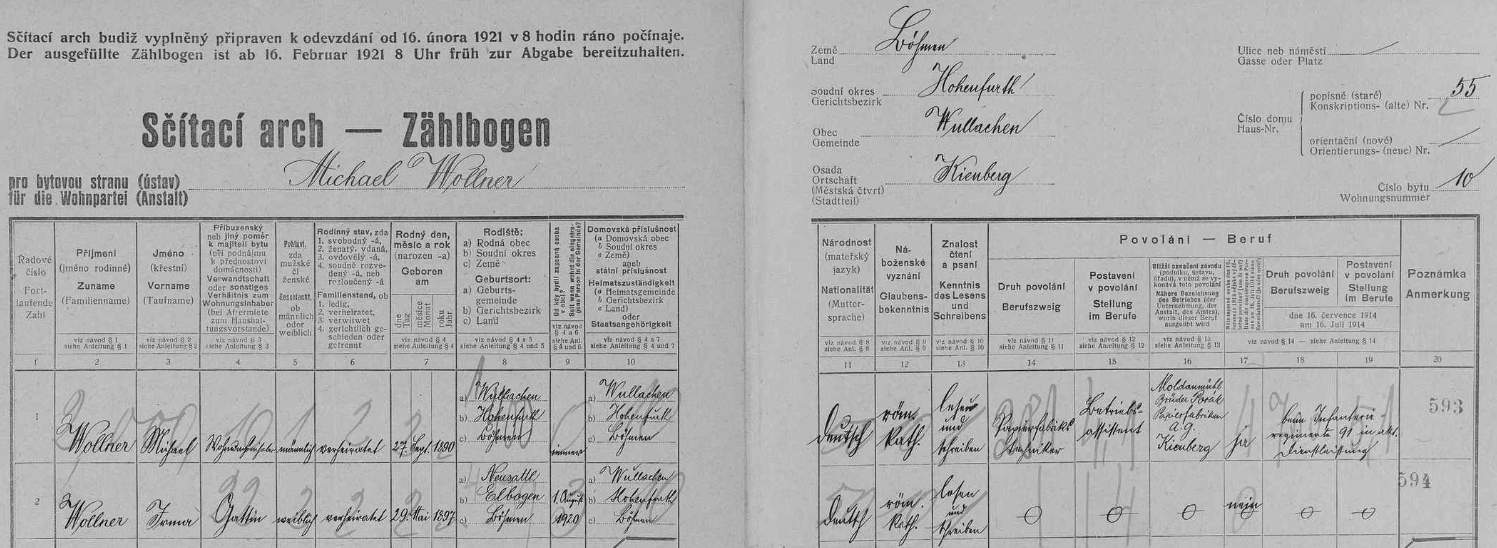 Sčítací arch budiž vyplněný připraven k odevzdání od 16. února 1921 v 8 hodin ráno počínaje.
Der ausgefüllte Zählbogen ist ab 16. Februar 1921 8 Uhr früh zur Abgabe bereitzuhalten.
Sčítací arch — Zählbogen
pro bytovou stranu (ústav)
für die Wohnpartei (Anstalt)
Michael Wollner
Země
Land
Böhmen
Soudní okres
Gerichtsbezirk
Hohenfurth
Obec
Gemeinde
Wullachen
Osada
Ortschaft
(Městská čtvrť)
(Stadtteil)
Kienberg
Ulice neb náměstí
Gasse oder Platz
Číslo domu
Haus-Nr.
popisné (staré)
Konskriptions- (alte) Nr.
55
orientační (nové)
Orientierungs- (neue) Nr.
Číslo bytu
Wohnungsnummer
10
Řadové
číslo
Fort-
laufende
Zahl
Příjmení
(jméno rodinné)
Zuname
(Familienname)
viz návod § 1
siehe Anleitung § 1
Jméno
(křestní)
Vorname
(Taufname)
viz návod § 2
siehe Anleitung § 2
Příbuzenský
neb jiný poměr
k majiteli bytu
(při podnájmu
k přednostovi
domácnosti)
Verwandtschaft
oder sonstiges
Verhältnis zum
Wohnungsinhaber
(bei Aftermiete
zum Haushal-
tungsvorstande)
viz návod § 3
siehe Anleitung § 3
Pohlaví,
zda
mužské
či
ženské
Geschlecht,
ob
männlich
oder
weiblich
Rodinný stav, zda
1. svobodný -á,
2. ženatý, vdaná,
3. ovdovělý -á,
4. soudně rozve-
dený -á, neb
rozloučený -á
Familienstand, ob
1. ledig,
2. verheiratet,
3. verwitwet
4. gerichtlich ge-
schieden oder
getrennt
Rodný den,
měsíc a rok
(narozen -a)
Geboren
am
dne
Tag
měsíce
Monat
roku
Jahr
viz návod § 4
siehe Anleitung § 4
Rodiště:
a) Rodná obec
b) Soudní okres
c) Země
Geburtsort:
a) Geburts-
gemeinde
b) Gerichtsbezirk
c) Land
viz návod § 4 a 5
siehe Anleitung § 4 und 5
Od kdy bydlí zapsaná osoba
v obci?
Seit wann wohnt die eingetra-
gene Person in der Gemeinde?
viz návod
§ 4 a 6
siehe Anl.
Domovská příslušnost
(a Domovská obec
b Soudní okres
c Země)
aneb
státní příslušnost
Heimatszuständigkeit
(a Heimatsgemeinde
b Gerichtsbezirk
c Land)
oder
Staatsangehörigkeit
viz návod § 4 a 7
siehe Anleitung § 4 und 7
Národnost
(mateřský
jazyk)
Nationalität
(Mutter-
sprache)
viz návod § 8
siehe Anl. § 8
Ná-
boženské
vyznání
Glaubens-
bekenntnis
viz návod § 9
siehe Anl. § 9
Znalost
čtení
a psaní
Kenntnis
des Lesens
und
Schreibens
viz návod § 10
siehe Anl. § 10
Povolání — Beruf
Druh povolání
Berufszweig
viz návod § 11
siehe Anleitung § 11
Postavení
v povolání
Stellung
im Berufe
viz návod § 12
siehe Anleitung § 12
Bližší označení závodu
(podniku, ústavu,
úřadu), v němž se vy-
konává toto povolání
Nähere Bezeichnung
des Betriebes (der
Unternehmung, der
Anstalt, des Amtes),
worin dieser Beruf
ausgeübt wird
viz návod § 13
siehe Anleitung § 13
Druh povolání
Berufszweig
Postavení
v povolání
Stellung
im Berufe
dne 16. července 1914
am 16. Juli 1914
viz návod § 14 — siehe Anleitung § 14
Poznámka
Anmerkung
1 2 3 4 5 6 7 8 9 10
11 12 13 14 15 16 17 18 19 20
1
Wollner
Michael
männlich
verheiratet
27. Sept. 1890
a) Wullachen
b) Hohenfurth
c) Böhmen
immer
a) Wullachen
b) Hohenfurth
c) Böhmen
deutsch
röm.
kath.
lesen
und
schreiben
Papierfabriks
techniker
Betriebs-
assistent
Moldaumühl
Brüder Porák
Papierfabriken
A.G.
Kienberg
ja
beim Infanterie
regimente 91 in akt.
Dienstleistung
593
2
Wollner
Irma
Gattin
weiblich
verheiratet
29. Mai 1897
a) Neusattl
b) Elbogen
c) Böhmen
1. August
1920
a) Wullachen
b) Hohenfurth
c) Böhmen
deutsch
röm.
kath.
lesen
und
schreiben
nein
594